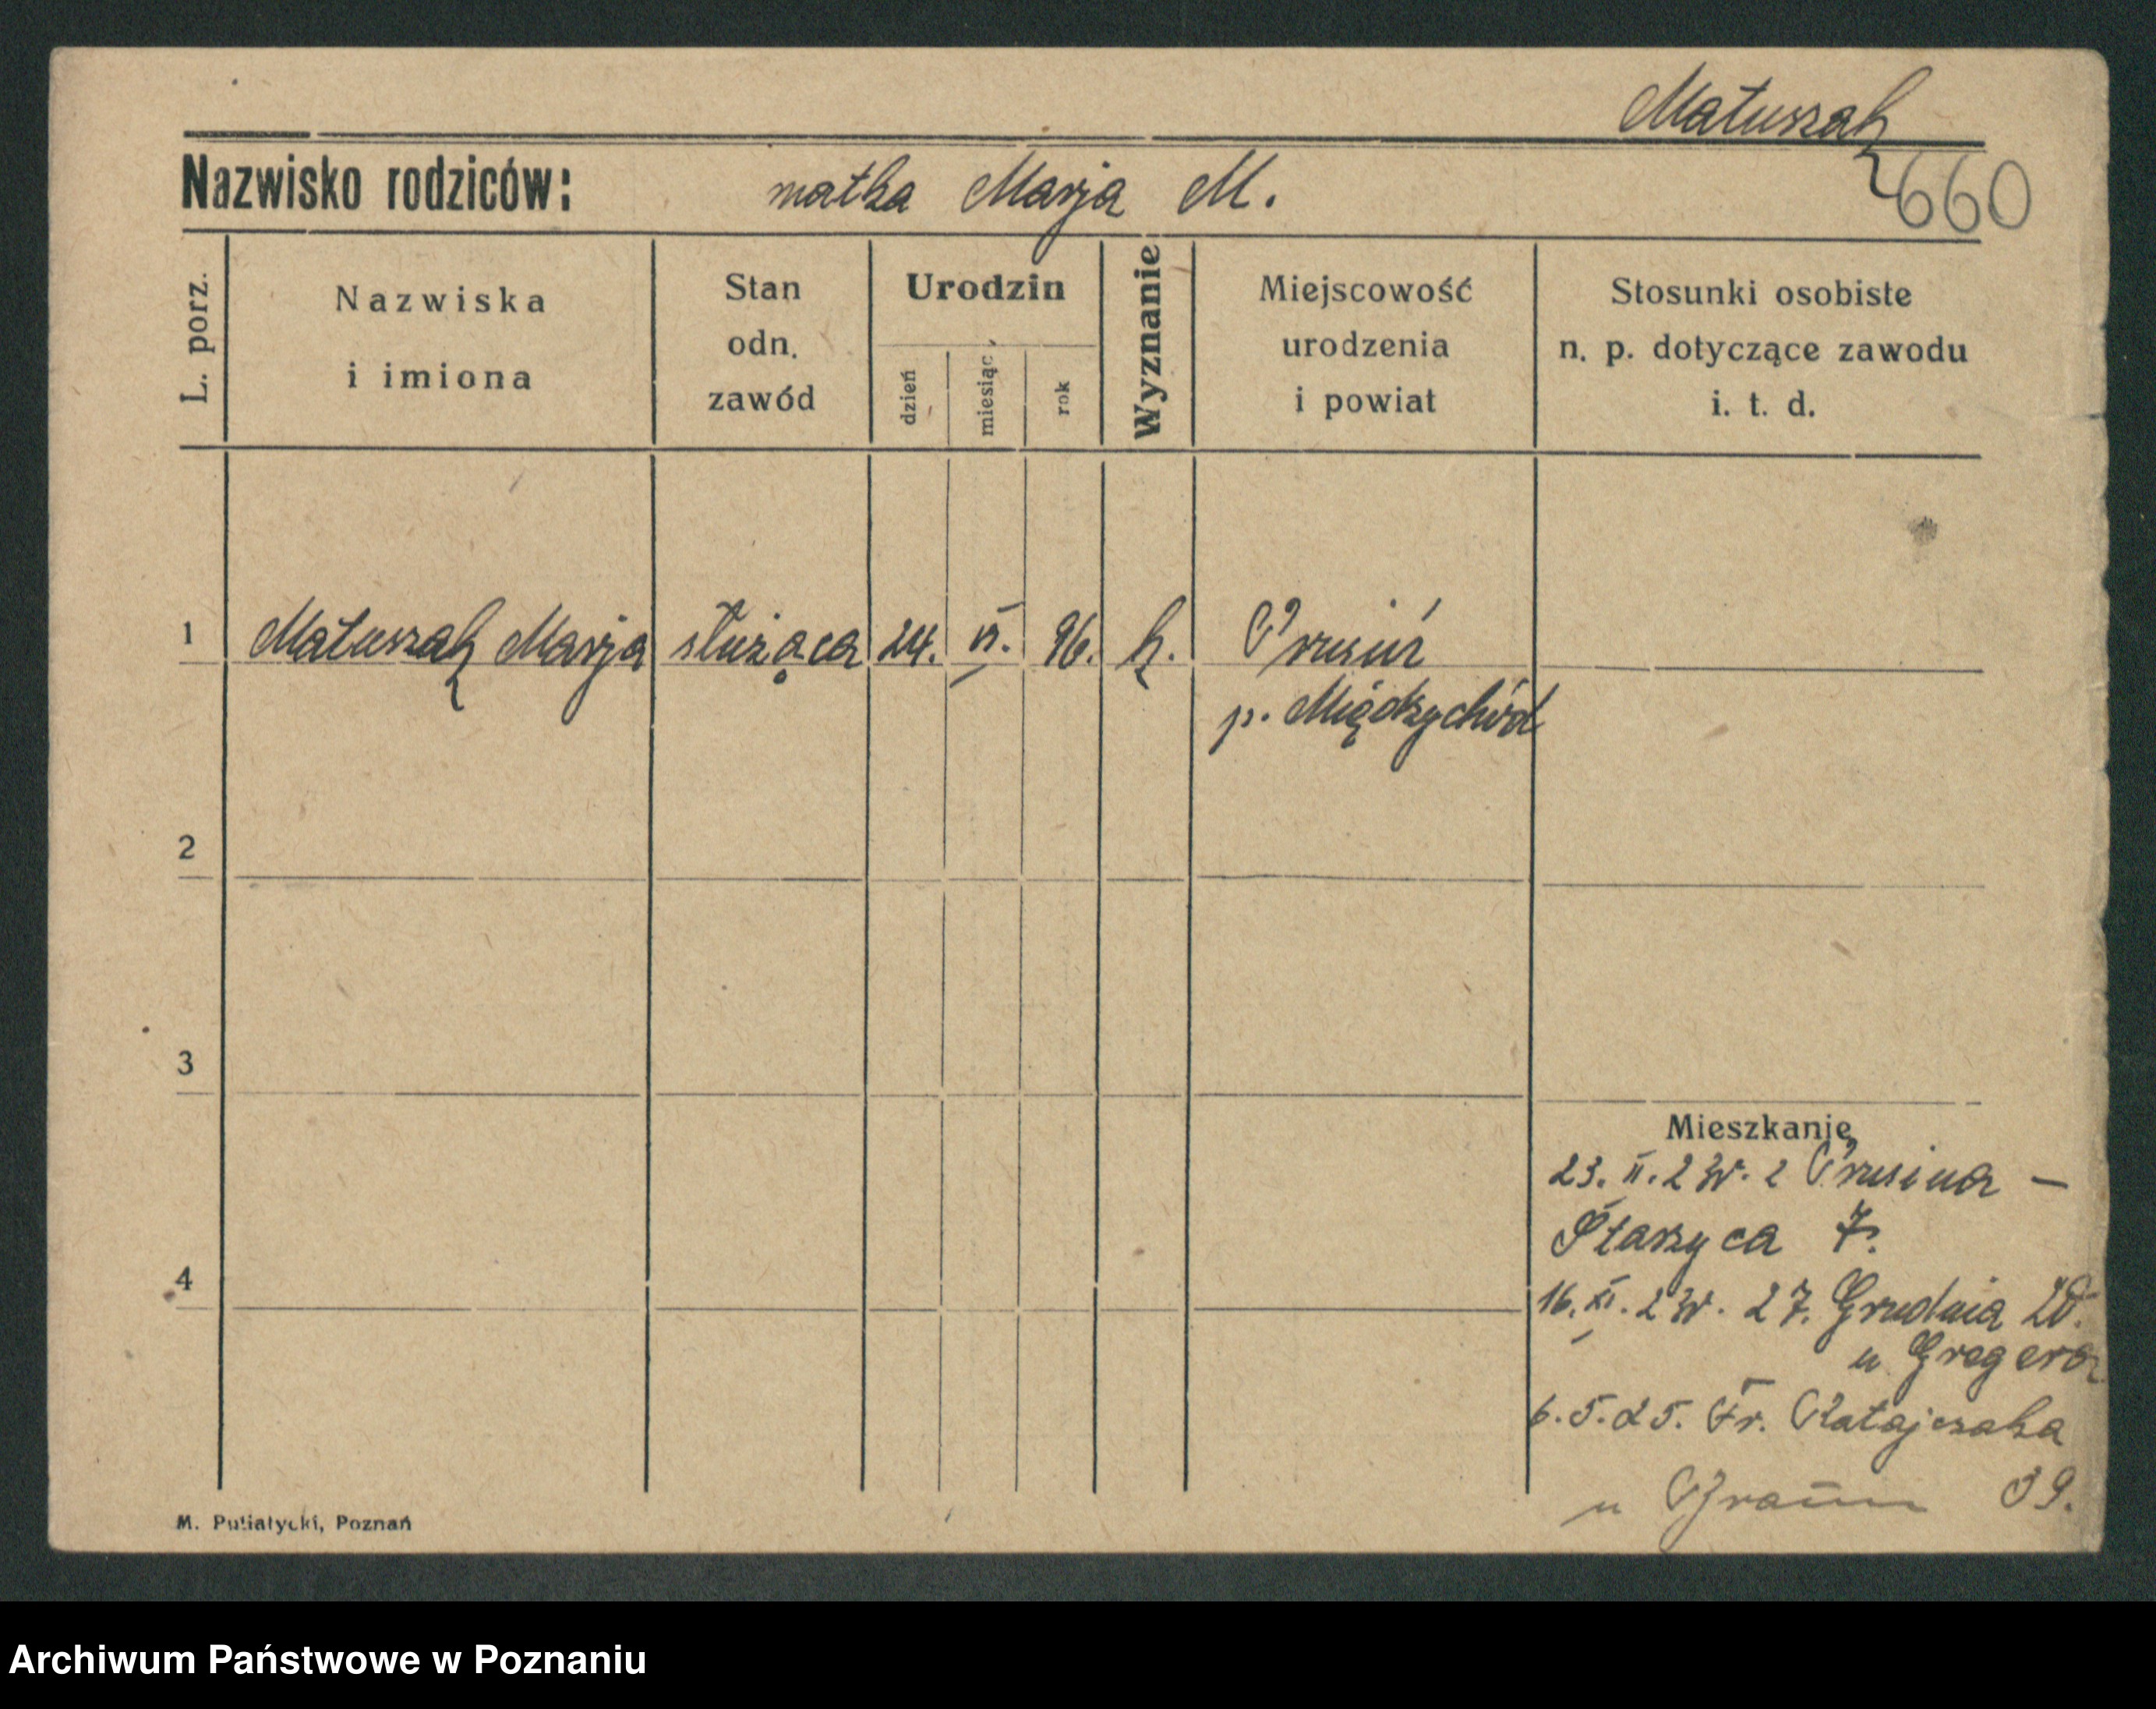 Matuszak
660
Nazwisko rodziców: matka Marja M.
L. porz.
Nazwiska
i imiona
Stan
odn.
zawód
Urodzin
dzień
miesiąc
rok
Wyznanie
Miejscowość
urodzenia
i powiat
Stosunki osobiste
n. p. dotyczące zawodu
i. t. d.
1 Matuszak Marja służąca 24. VI. 96. k. Prusim
p. Międzychód
2
3
Mieszkanie
23. II. 24. z Prusima —
Staszyca 7.
4
16. XI. 24. 27. Grudnia 20.
u Gregera
6.5.25. Fr. Ratajczaka
u Braun 39.
M. Putiatycki, Poznań
Archiwum Państwowe w Poznaniu